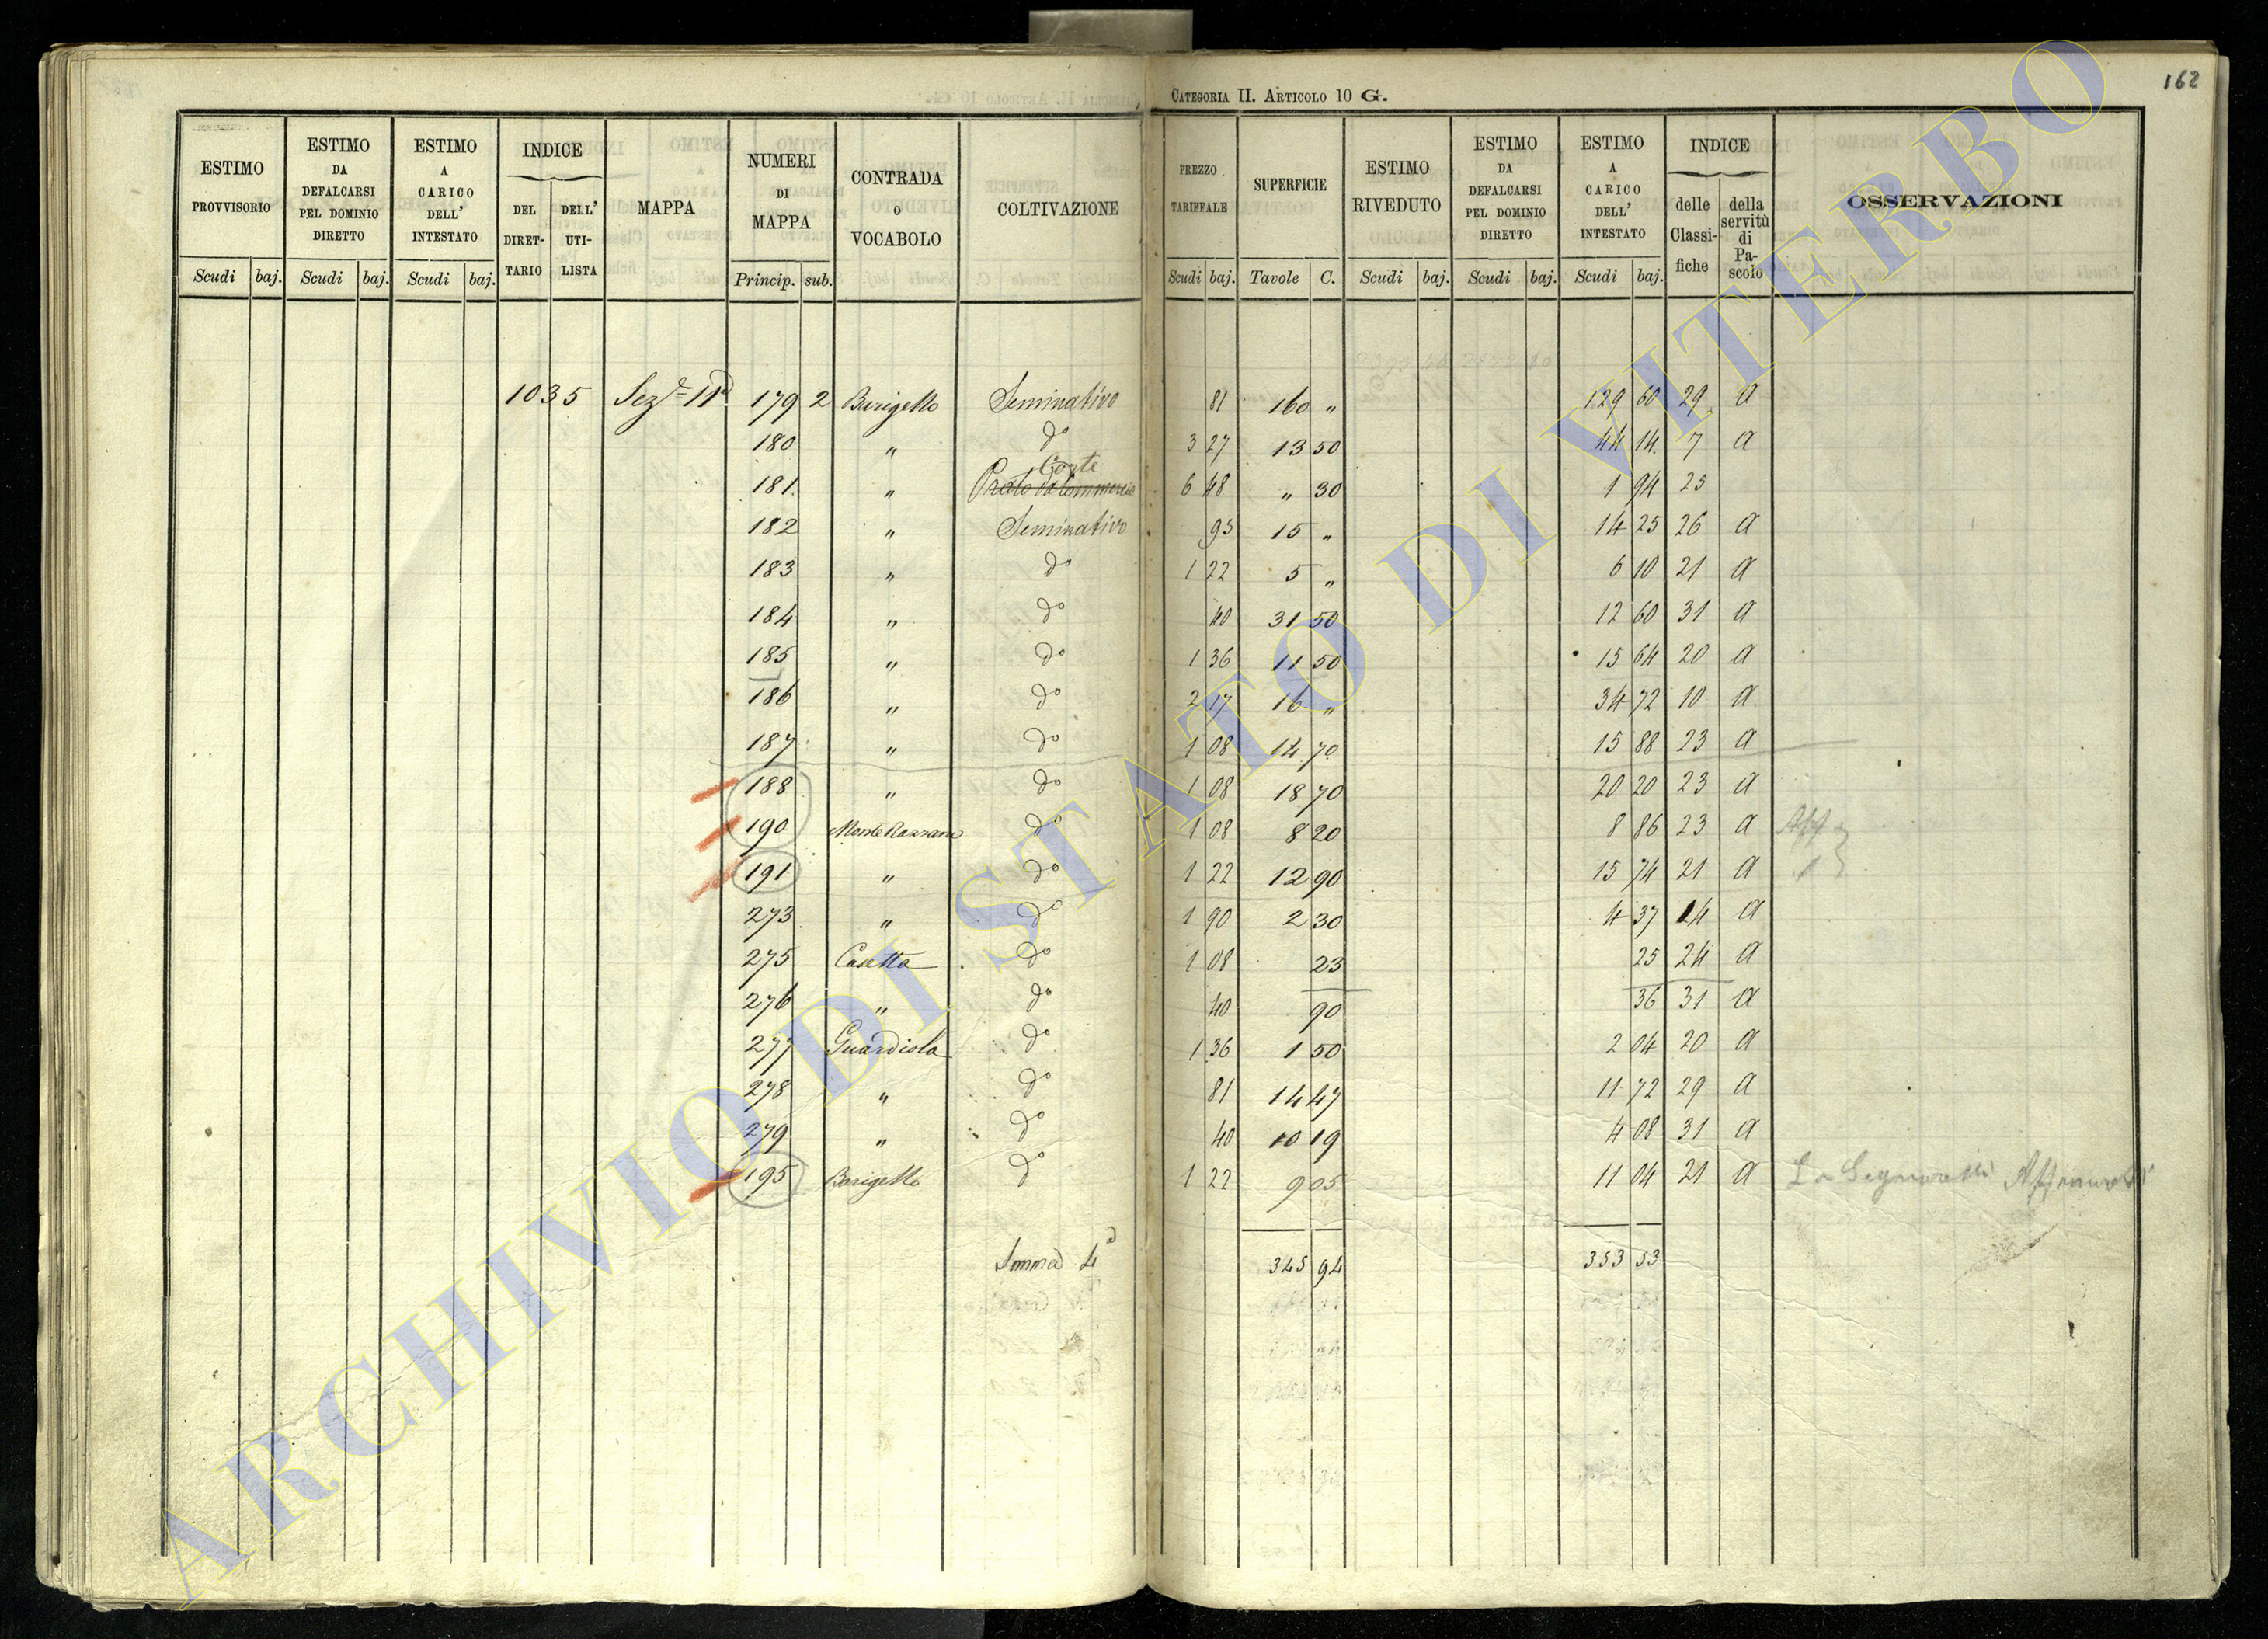 162
CATEGORIA II. ARTICOLO 10 G.
ESTIMO PROVVISORIO Scudi baj.
ESTIMO DA DEFALCARSI PEL DOMINIO DIRETTO Scudi baj.
ESTIMO A CARICO DELL' INTESTATO Scudi baj.
INDICE DEL DIRETTARIO DELL' UTILISTA
MAPPA
NUMERI DI MAPPA Princip. sub.
CONTRADA O VOCABOLO
COLTIVAZIONE
PREZZO TARIFFALE Scudi baj.
SUPERFICIE Tavole C.
ESTIMO RIVEDUTO Scudi baj.
ESTIMO DA DEFALCARSI PEL DOMINIO DIRETTO Scudi baj.
ESTIMO A CARICO DELL' INTESTATO Scudi baj.
INDICE delle Classifiche della servitù di Pascolo
OSSERVAZIONI
1035 Sez.e 11a 179 2 Barigello Seminativo 81 160 " 129 60 29 a
180 " do 3 27 13 50 44 14 7 a
181 " Corte Prato 6 48 " 30 1 94 25
182 " Seminativo 95 15 " 14 25 26 a
183 " do 1 22 5 " 6 10 21 a
184 " do 40 31 50 12 60 31 a
185 " do 1 36 11 50 15 64 20 a
186 " do 2 17 16 " 34 72 10 a
187 " do 1 08 14 70 15 88 23 a
188 " do 1 08 18 70 20 20 23 a
190 Monte Razzano do 1 08 8 20 8 86 23 a Aff
191 " do 1 22 12 90 15 74 21 a 1
273 " do 1 90 2 30 4 37 14 a
275 Casetta do 1 08 23 25 24 a
276 " do 40 90 36 31 a
277 Guardiola do 1 36 1 50 2 04 20 a
278 " do 81 14 47 11 72 29 a
279 " do 40 10 19 4 08 31 a
195 Barigello do 1 22 9 05 11 04 21 a
Somma 4a 345 94 353 53
ARCHIVIO DI STATO DI VITERBO